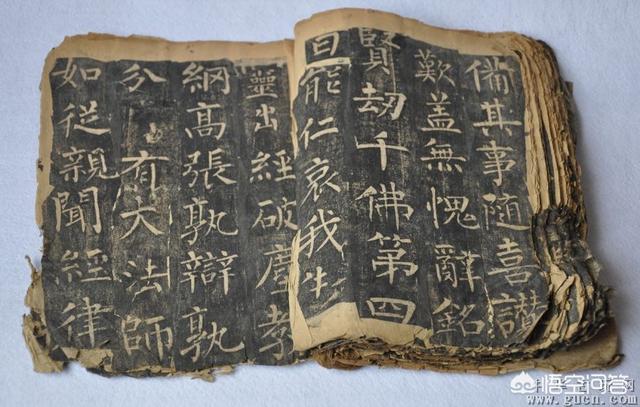 備其事隨喜讃
歎蓋無愧辭銘
賢劫千佛第四
曰能仁哀我生
靈出經破塵教
綱髙張孰辯孰
分有大法師
如從親聞經律
悟空问答
www.gucn.com